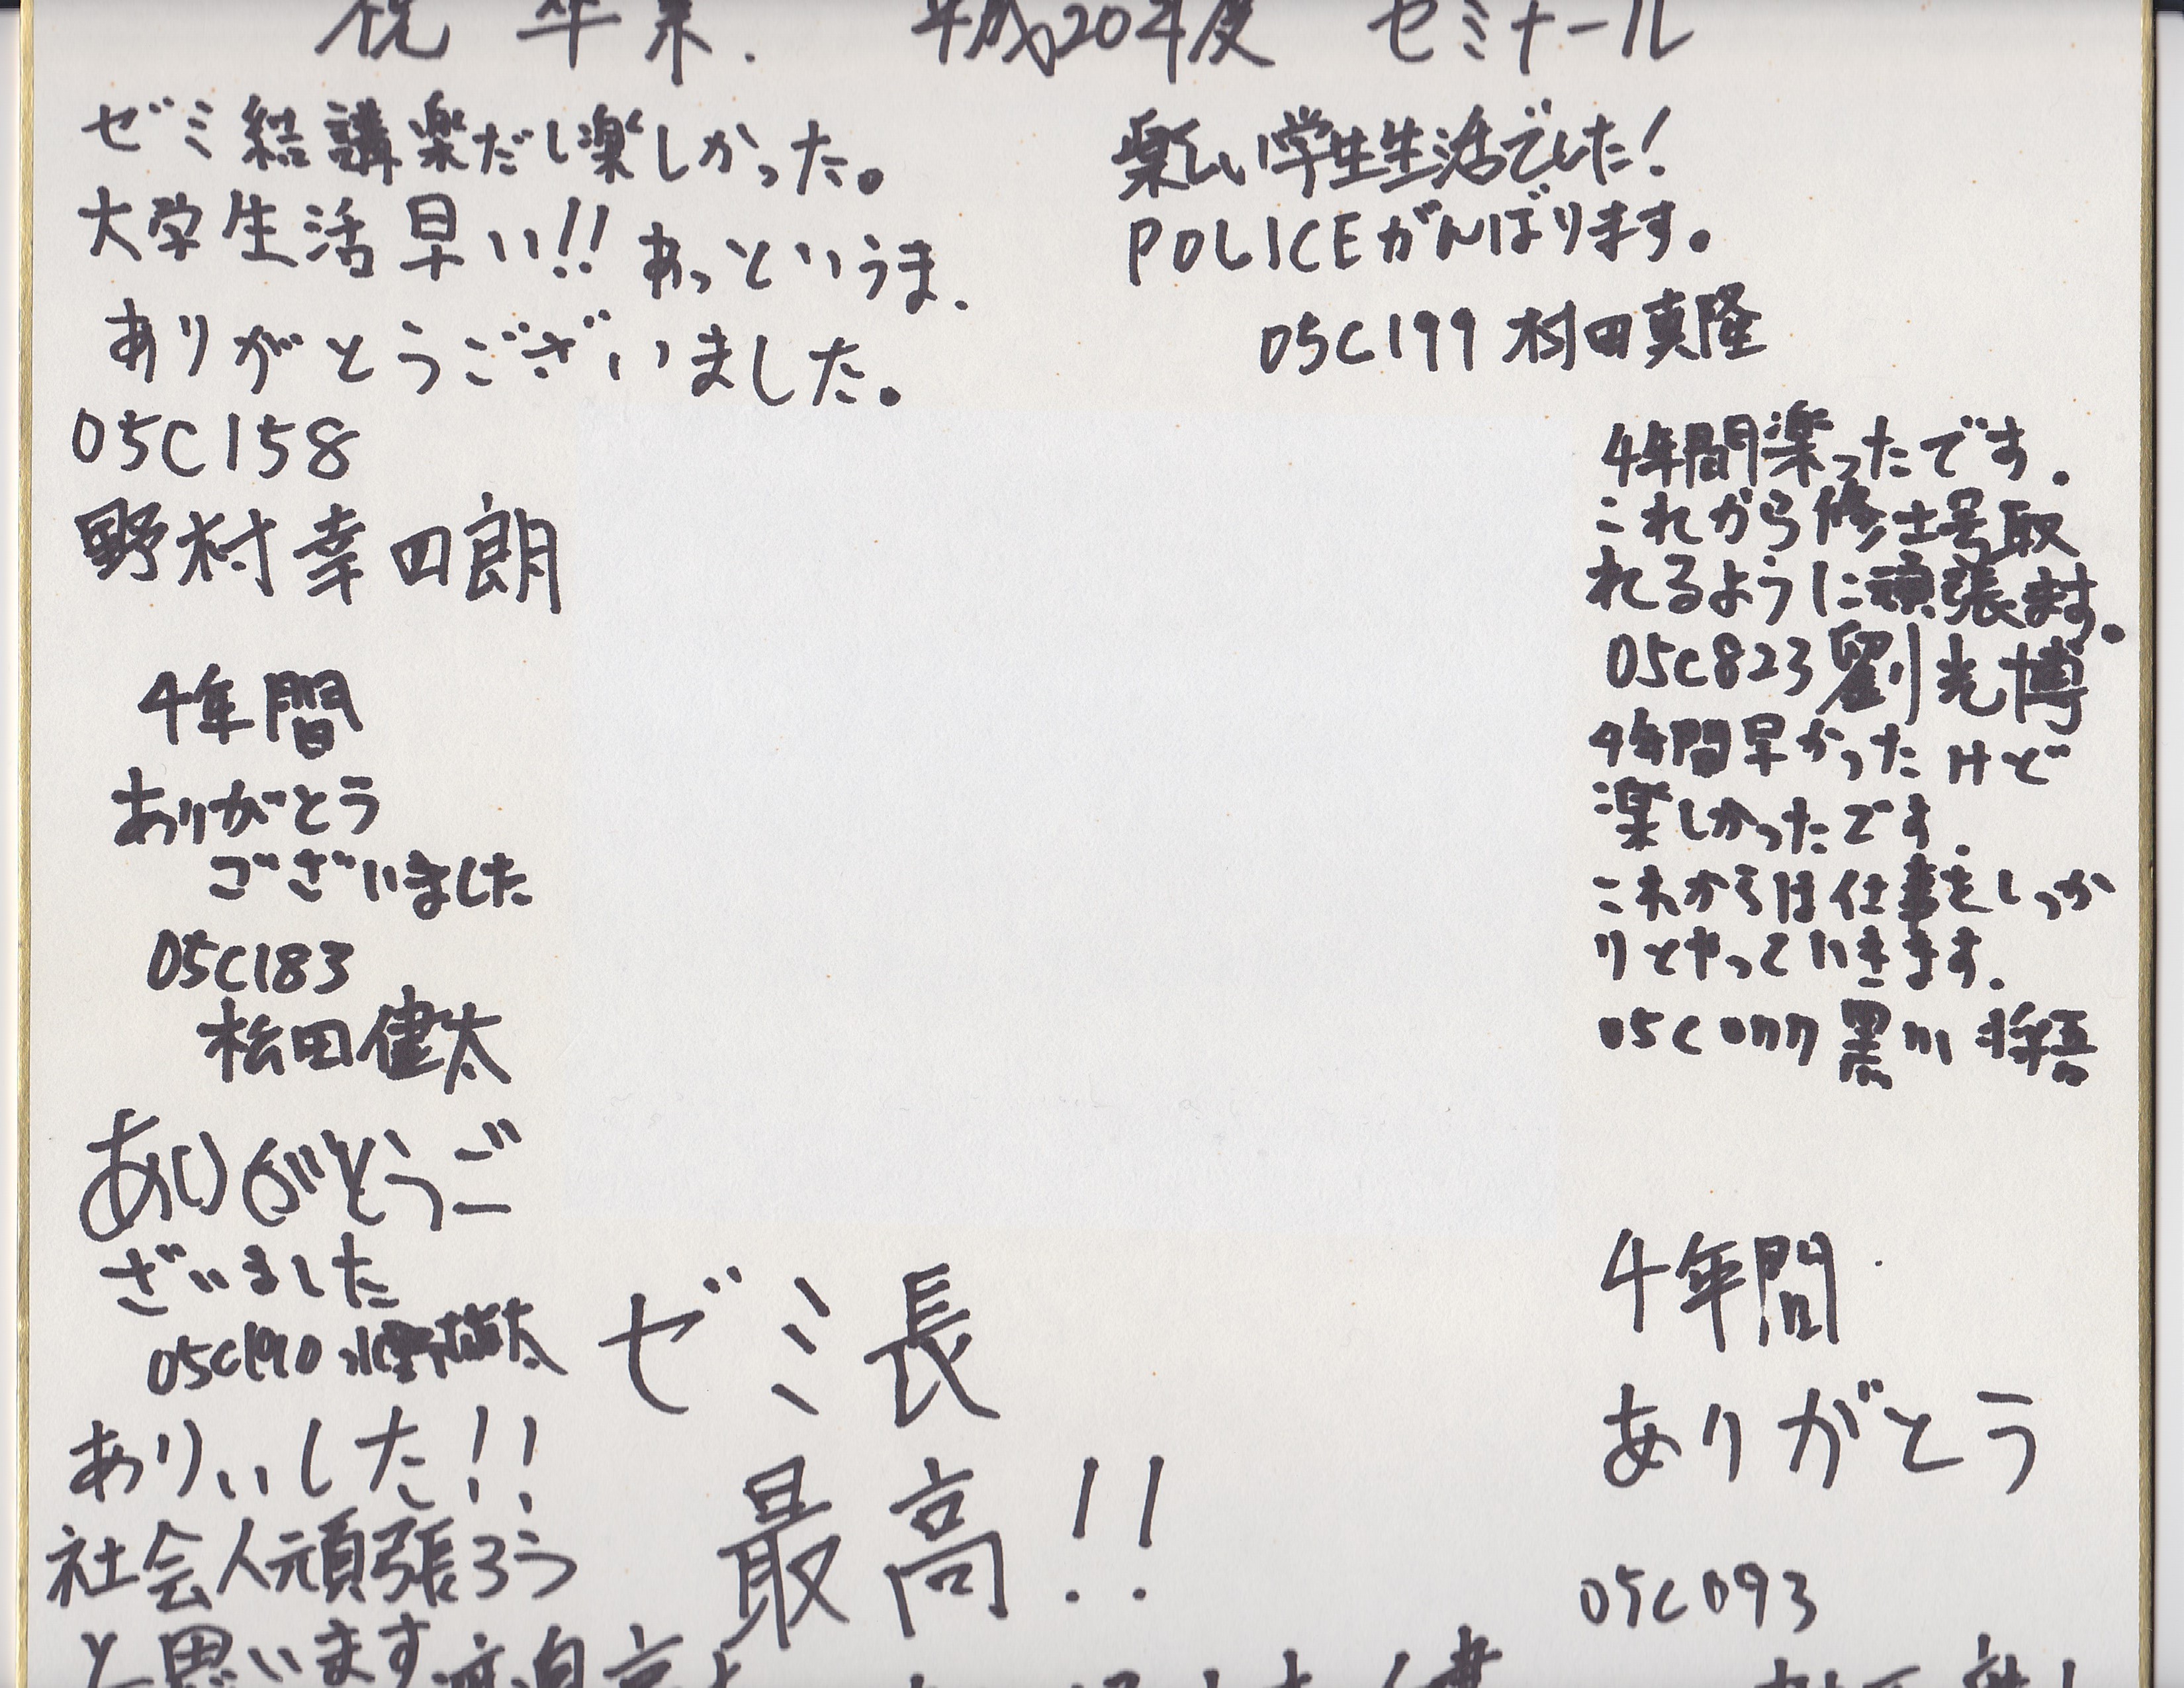 祝 卒業. 平成20年度 セミナール
ゼミ結講楽だし楽しかった。
大学生活早い!! あっというま.
ありがとうございました。
05C158
野村幸四朗
4年間
ありがとう
ございました
05C183
松田健太
ありがとうご
ざいました
05C190
ありぃした!!
社会人頑張ろう
と思います
ゼミ長
最高!!
楽しい学生生活でした!
POLICEがんばります。
05C199 村田真隆
4年間楽ったです.
これから修士号取
れるように頑張ます。
05C823 劉光博
4年間早かったけど
楽しかったです.
これからは仕事をしっか
りとやっていきます.
05C077 黒川将吾
4年間
ありがとう
05C093